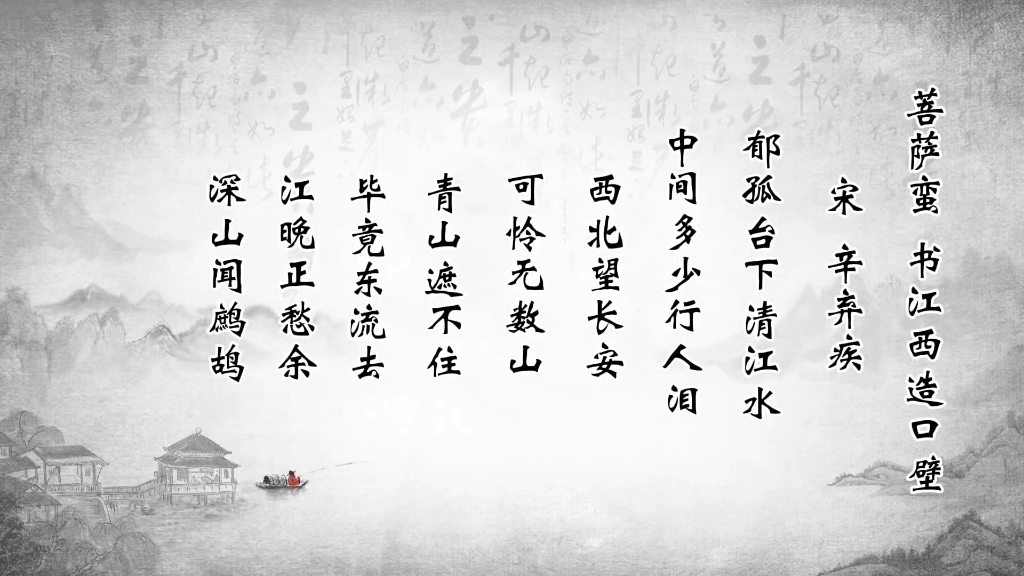 菩萨蛮 书江西造口壁
宋 辛弃疾
郁孤台下清江水
中间多少行人泪
西北望长安
可怜无数山
青山遮不住
毕竟东流去
江晚正愁余
深山闻鹧鸪